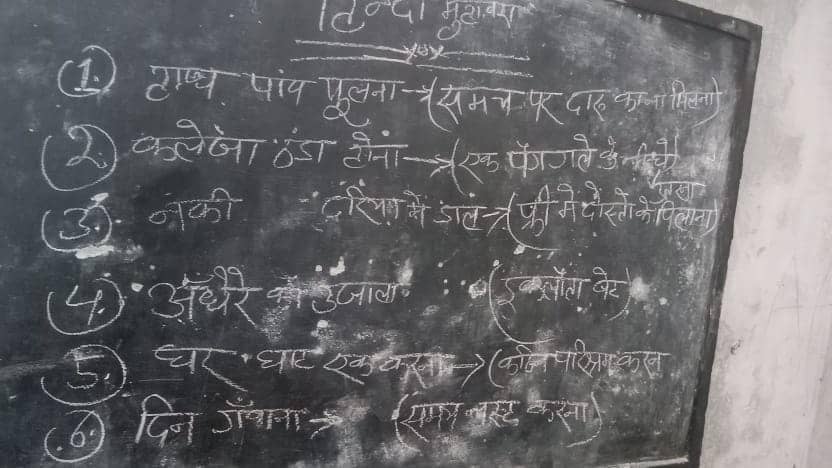 हिन्दी मुहावरा
1. हाथ पांव फूलना → (समय पर दारू का ना मिलना)
2. कलेजा ठंडा होना → (एक पैग गले के नीचे)
3. नेकी दरिया में डाल → (फ्री में दोस्तो को पिलाना)
4. अँधेरे का उजाला (इकलौता बेटा)
5. घर घाट एक करना → (कठिन परिश्रम करना
6. दिन गँवाना → (समय नष्ट करना)